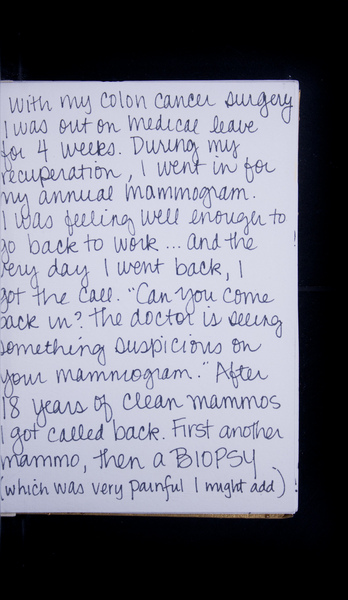 with my colon cancer surgery
I was out on medical leave
for 4 weeks. During my
recuperation, I went in for
my annual mammogram.
I was feeling well enough to
go back to work ... and the !
very day I went back, I
got the call. "Can you come
back in? The doctor is seeing
something suspicious on
your mammogram." After
18 years of clean mammos
I got called back. First another
mammo, then a BIOPSY
(which was very painful I might add) !